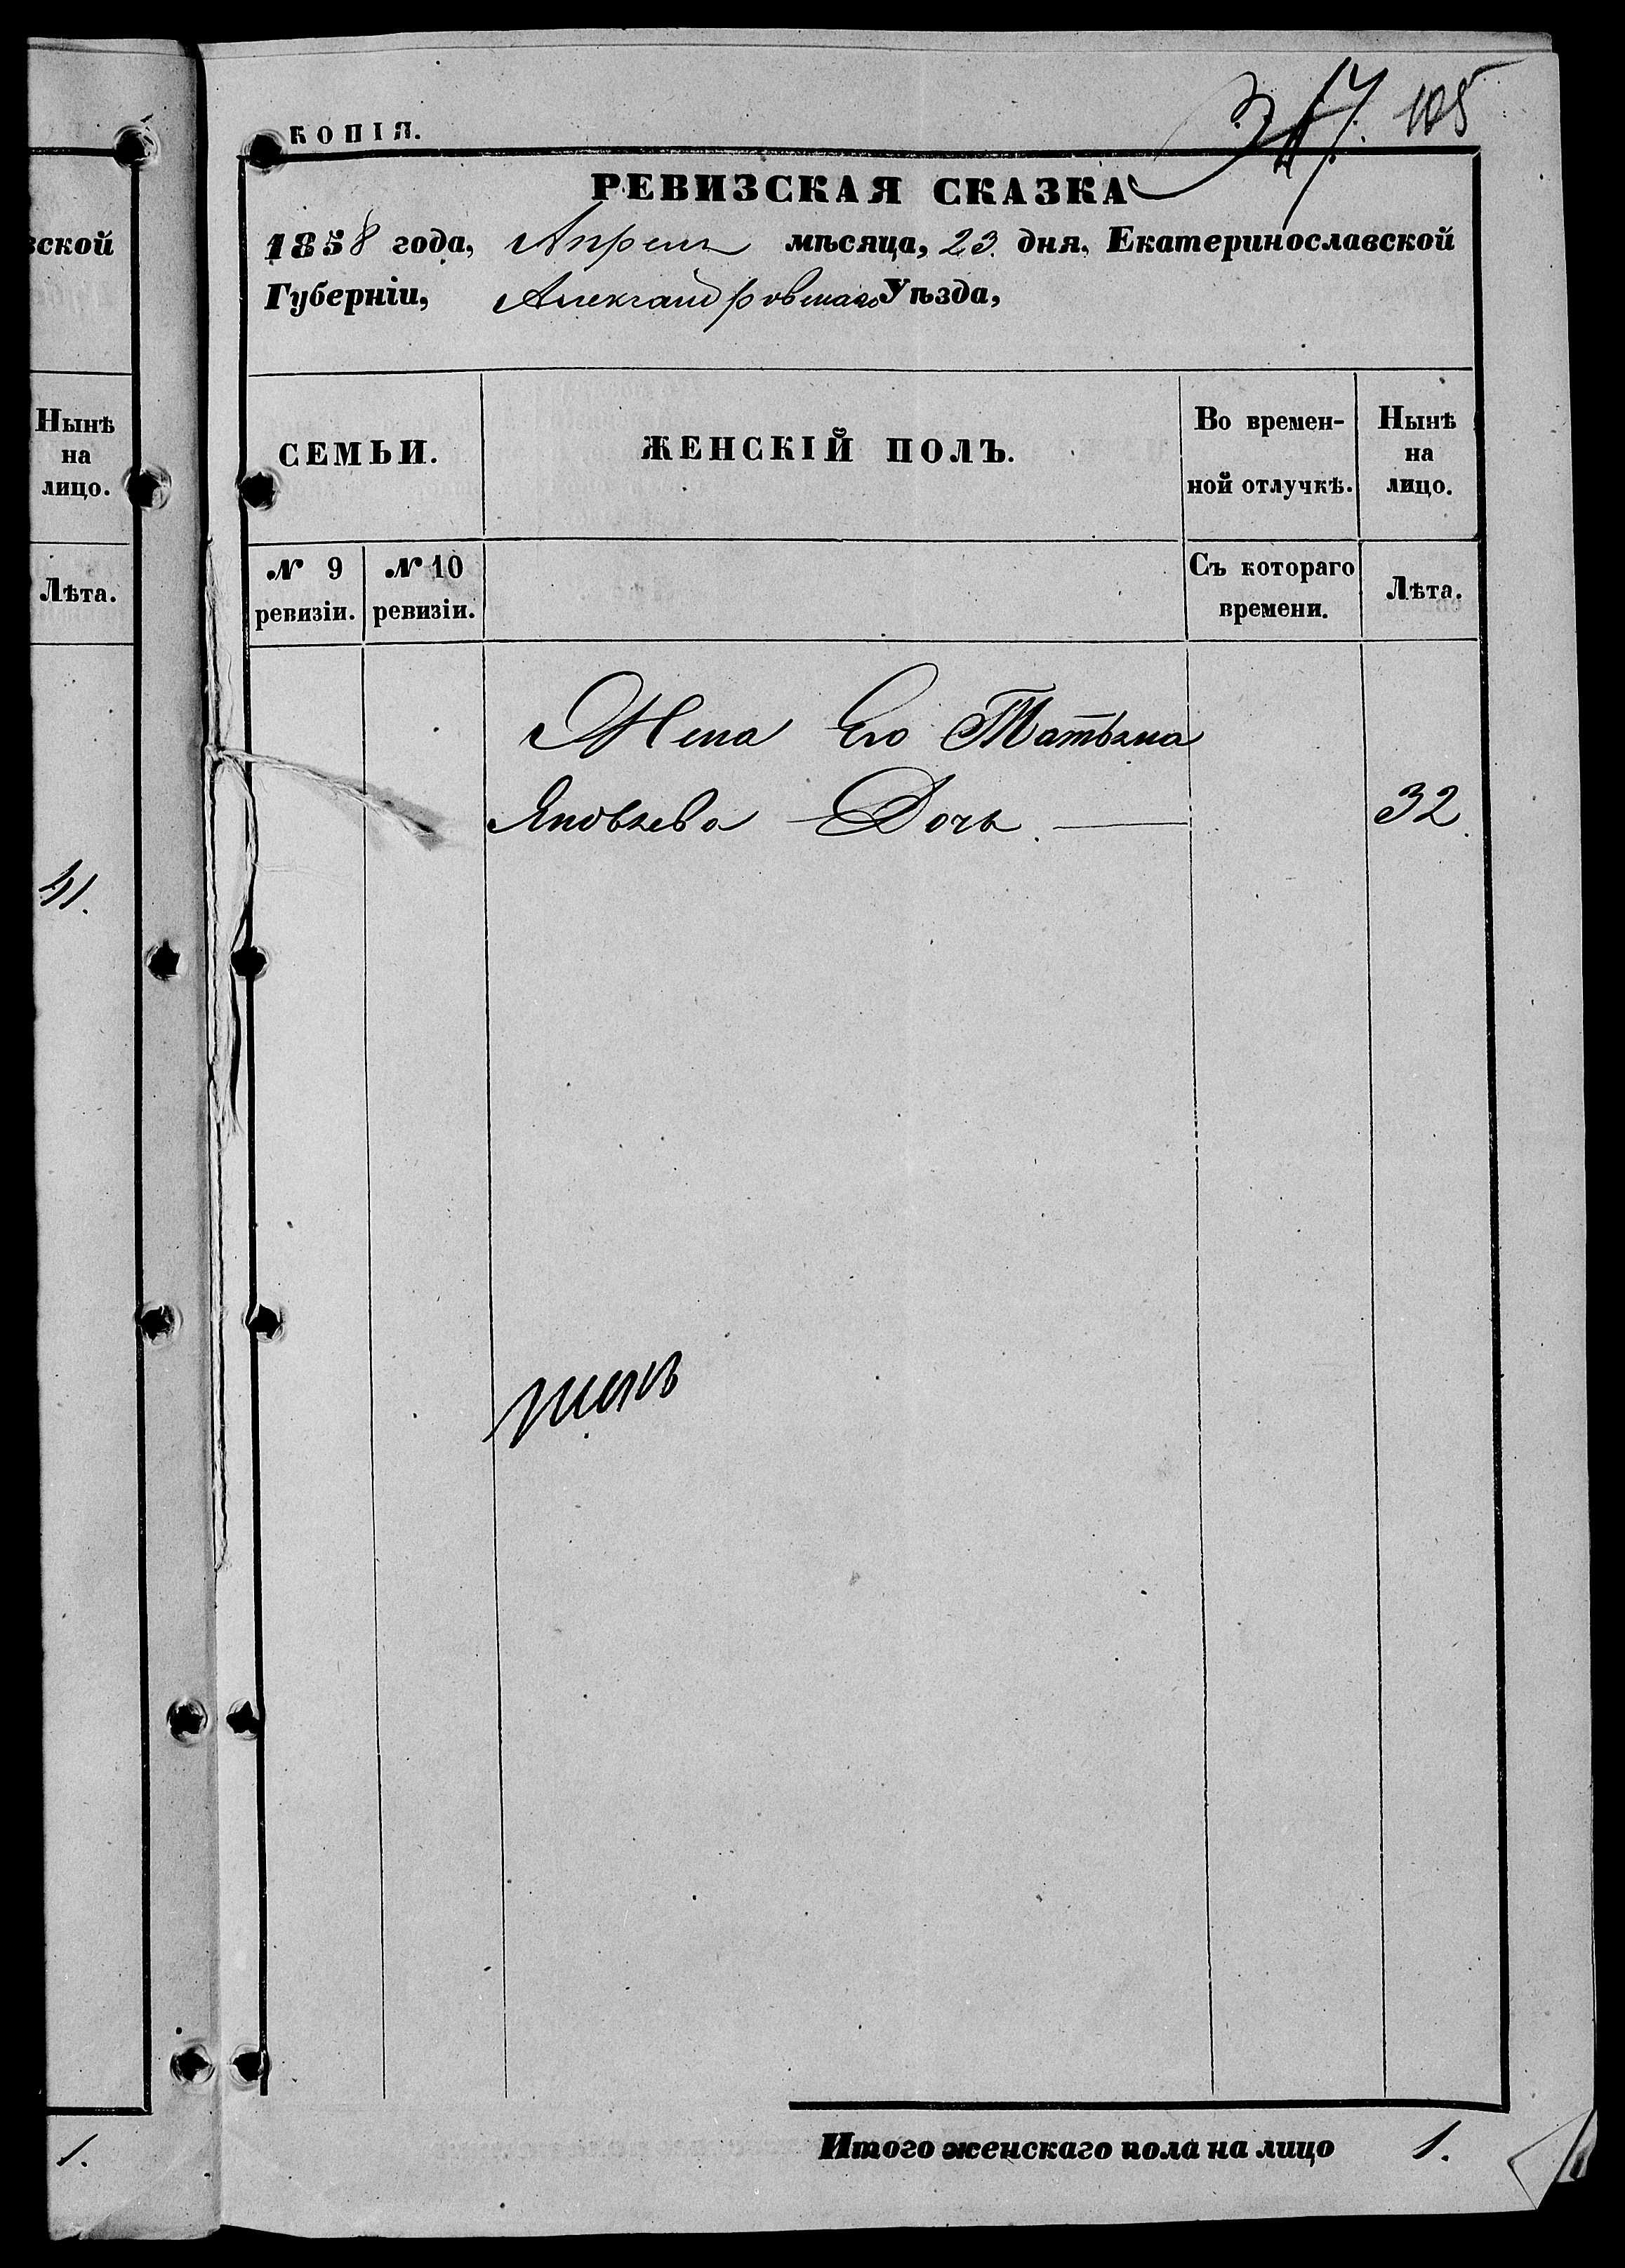 вской
Нынѣ
на
лицо.
Лѣта.
41.
1.
КОПІЯ.
105
РЕВИЗСКАЯ СКАЗКА
1858 года, Апреля мѣсяца, 23. дня, Екатеринославской
Губерніи, Александровскаго Уѣзда,
СЕМЬИ.
ЖЕНСКІЙ ПОЛЪ.
Во времен-
ной отлучкѣ.
Нынѣ
на
лицо.
№ 9
ревизіи.
№ 10
ревизіи.
Съ котораго
времени.
Лѣта.
Жена Его Татьяна
Яковлева Дочь. 32.
Итого женскаго пола на лицо 1.